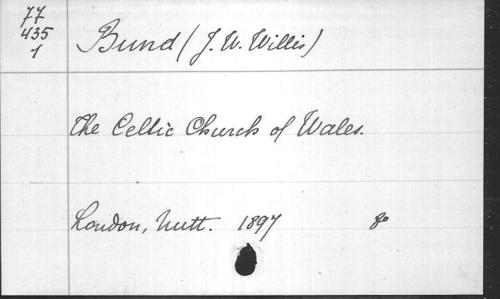 77
435
1
Bund (J. W. Willis)
The Celtic Church of Wales.
London, Nutt. 1897 8o